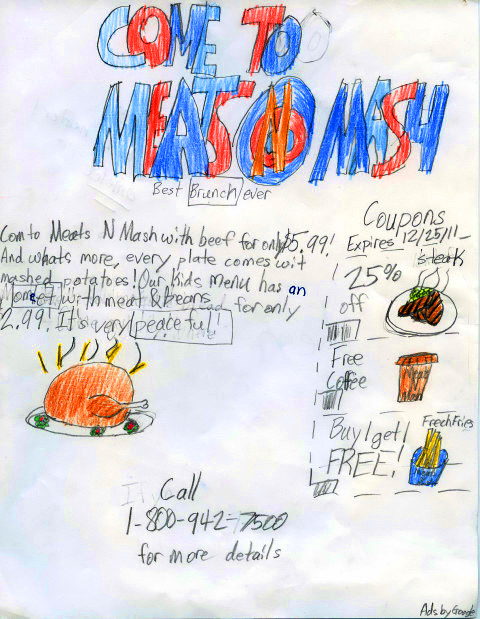 COME TO
MEATS N MASH
Best Brunch ever
Com to Meats N Mash with beef for only $5.99!
And whats more, every plate comes wit
mashed potatoes! Our Kids menu has an
with meat & beans for only
2.99! It's very peaceful!
Coupons
Expires 12/25/11
steak
25%
off
Free
Coffee
Buy 1 get 1
FREE!
Frech Fries
Call
1-800-942-7500
for more details
Ads by Google